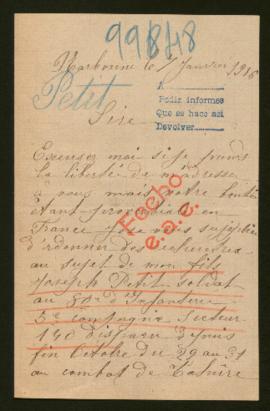 99848
Narbonne le 7 Janvier 1916
Petit
Sire
A
Pedir informes
Que se hace aci
Devolver
Excusez moi si je prends
la liberté de m'adresser
à vous mais votre bonté
étant proverbiale en
France je vous
d'ordonner des recherches
au sujet de mon fils
Joseph Petit soldat
au 80e d'Infanterie
5e compagnie secteur
140 disparu depuis
fin Octobre du 29 au 31
au combat de Tahure
Fecho
e.a.c.